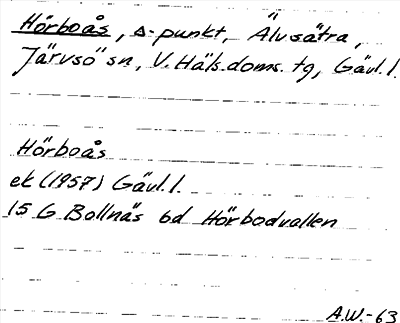 Hörboås, ∆-punkt, Älvsätra,
Järvsö sn, V. Häls. doms. tg, Gävl. l.
Hörboås
ek (1957) Gävl. l.
15 G Bollnäs 6d Hörbodvallen
A.W.-63